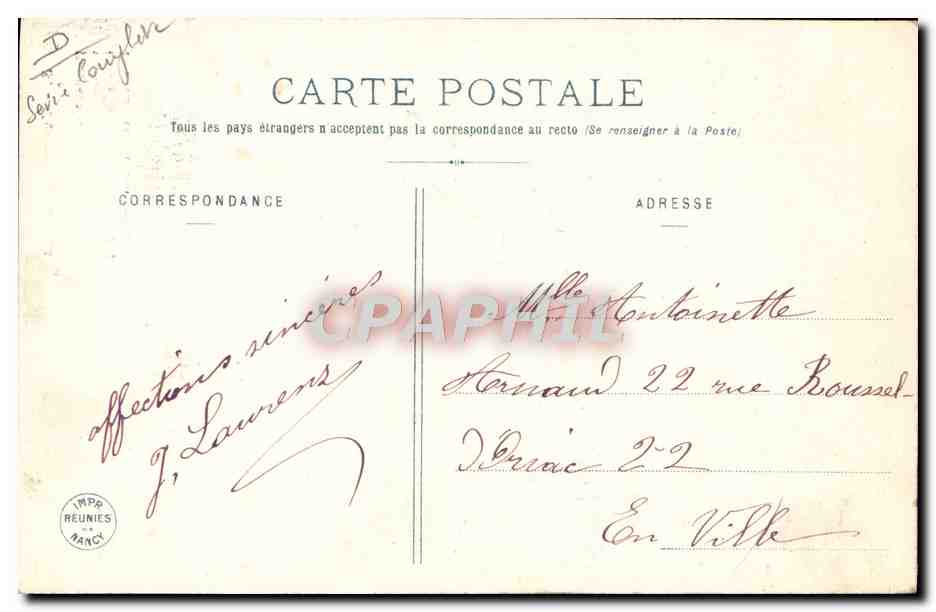 D
Série
CARTE POSTALE
Tous les pays étrangers n'acceptent pas la correspondance au recto (Se renseigner à la Poste)
CORRESPONDANCE
ADRESSE
affections sincères
J, Laurens
Mlle Antoinette
Arnaud 22 rue Roussel-
Doriac 22
En Ville
CPAPHIL
IMPR
RÉUNIES
DE
NANCY